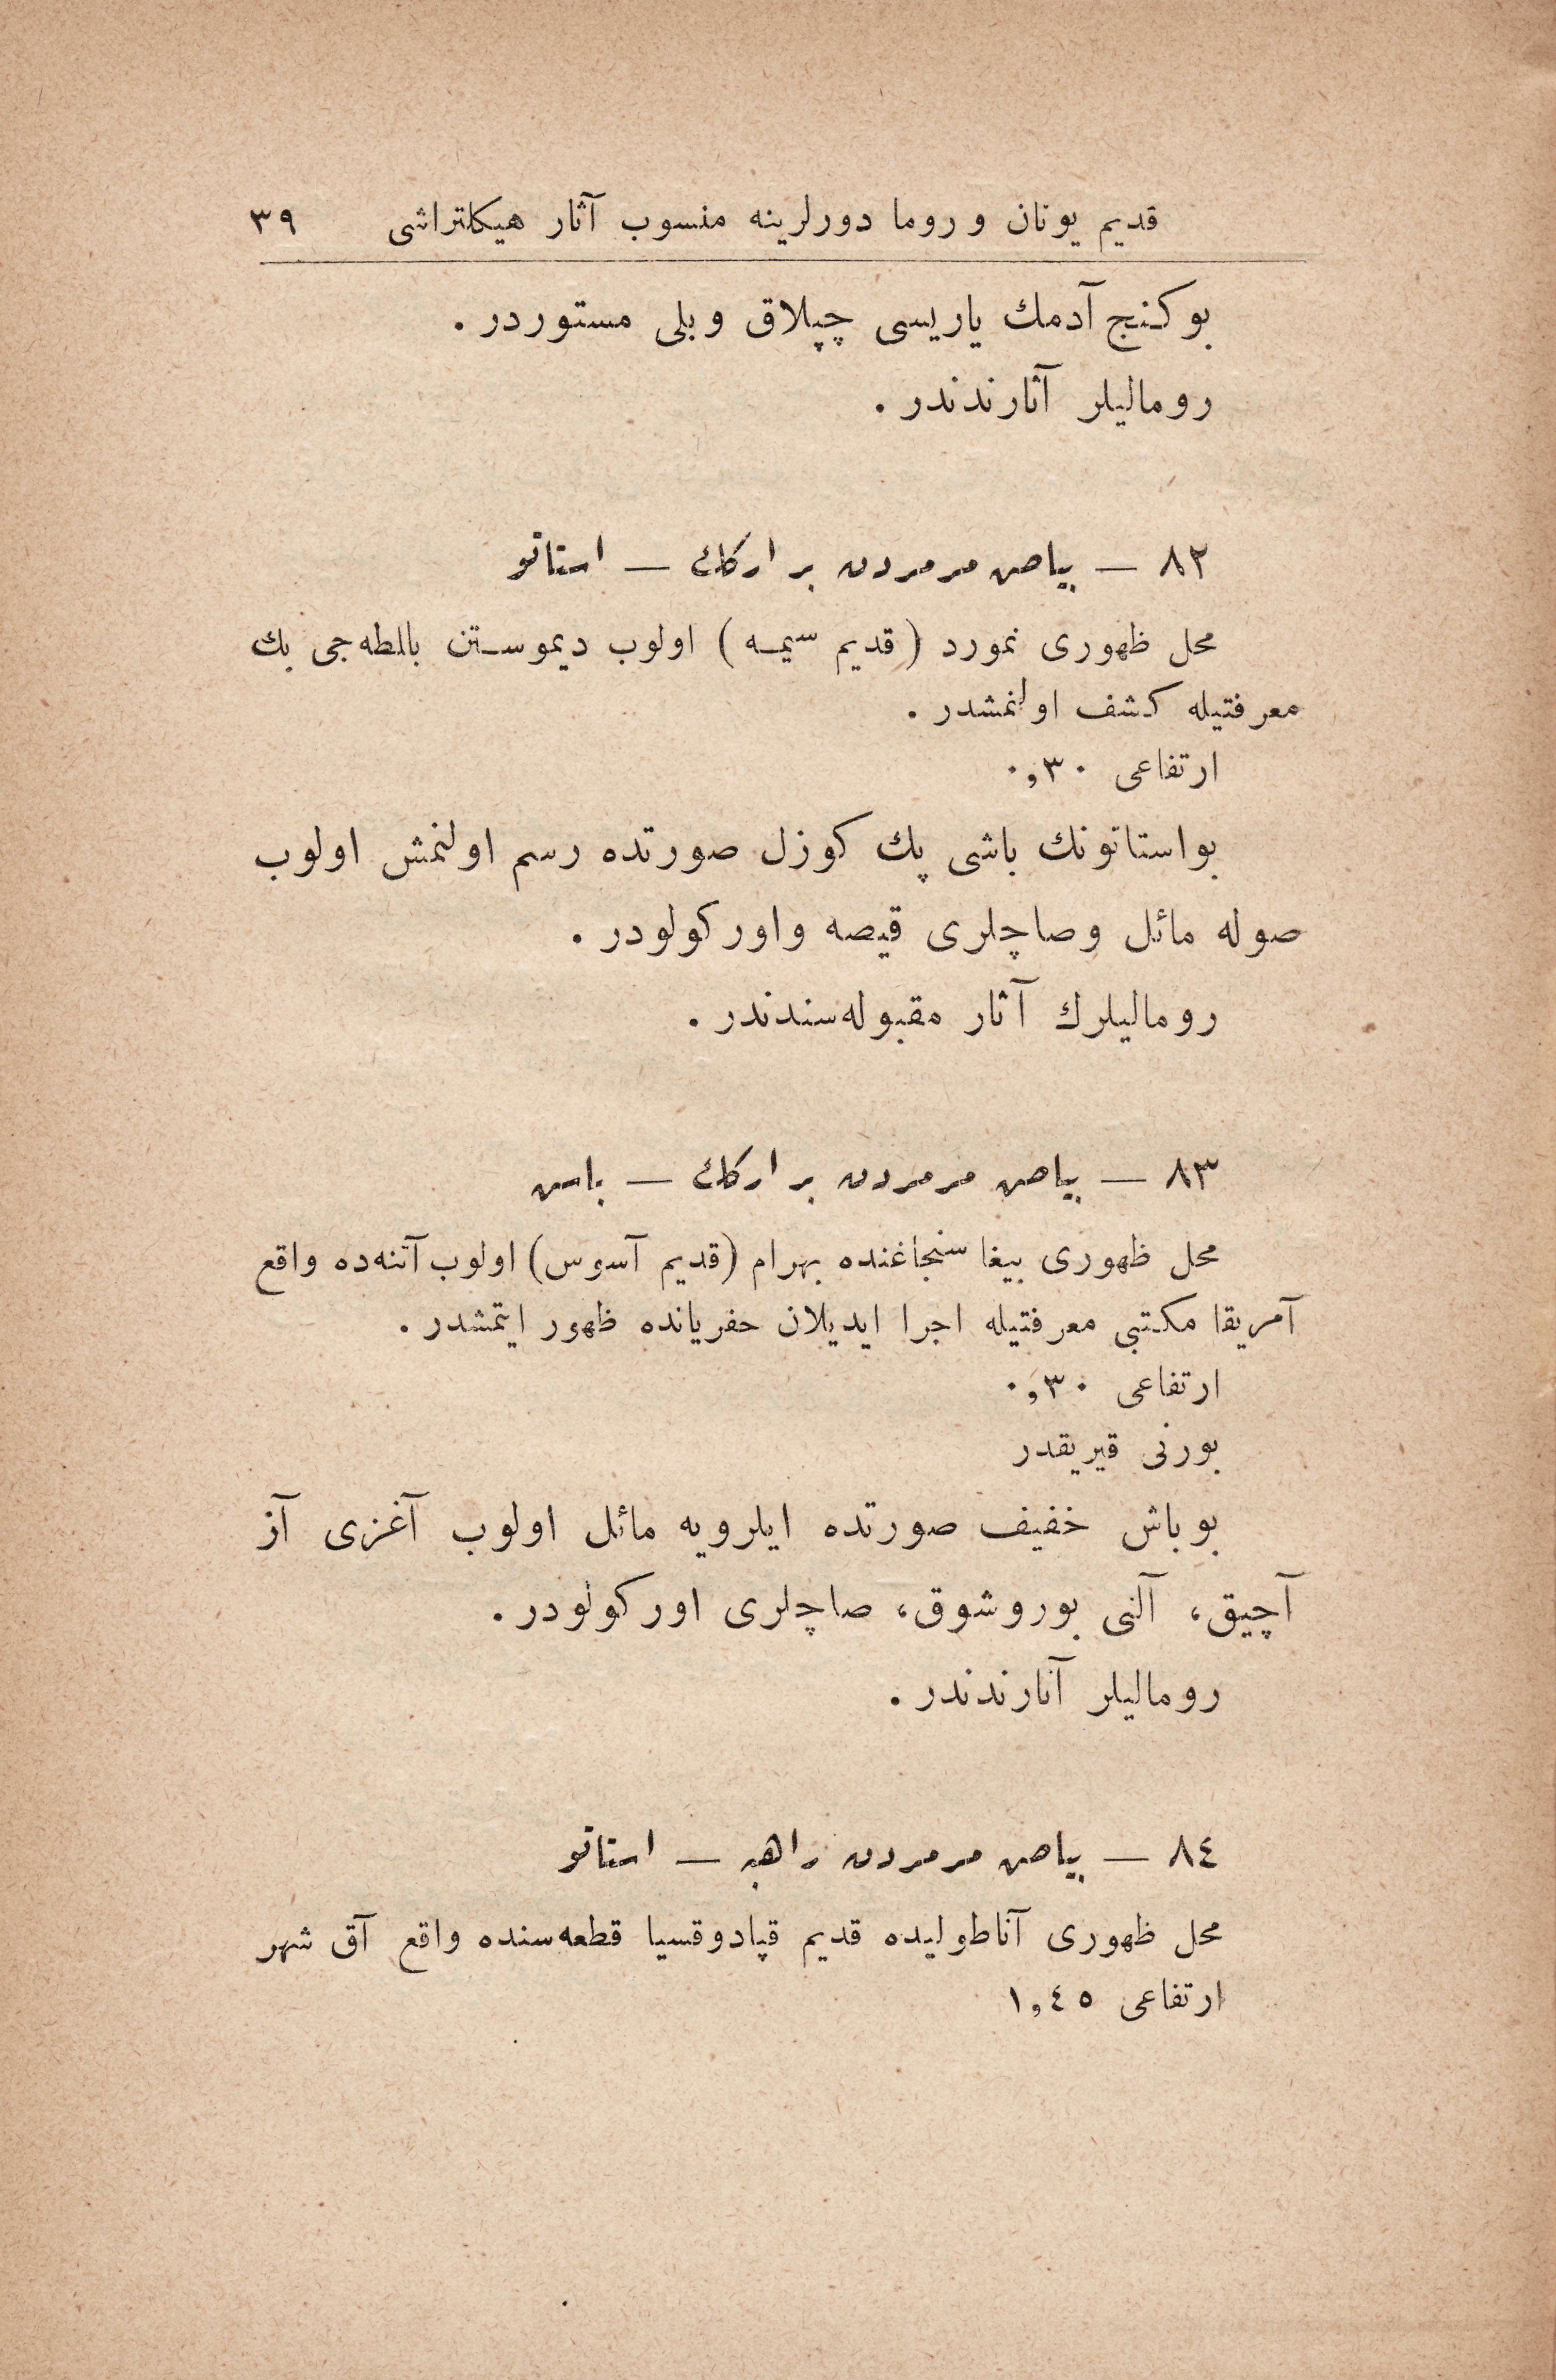 قديم يونان و روما دورلرينه منسوب آثار هيكلتراشى ٣٩
بو كنج آدمك ياريسى چپلاق و بلى مستوردر .
روماليلر آثارندندر .
٨٢ — بياض مرمردن بر اركك — استاتو
محل ظهورى نمورد ( قديم سيمه ) اولوب ديموستن بالطه‌جى بك
معرفتيله كشف اولنمشدر .
ارتفاعى ٠,٣٠
بو استاتونك باشى پك كوزل صورتده رسم اولنمش اولوب
صوله مائل و صاچلرى قيصه و اوركولودر .
روماليلرك آثار مقبوله‌سندندر .
٨٣ — بياض مرمردن بر اركك — باس
محل ظهورى بيغا سنجاغنده بهرام (قديم آسوس) اولوب آتنه‌ده واقع
آمريقا مكتبى معرفتيله اجرا ايديلان حفرياتده ظهور ايتمشدر .
ارتفاعى ٠,٣٠
بورنى قيريقدر
بو باش خفيف صورتده ايلرويه مائل اولوب آغزى آز
آچيق، آلنى بوروشوق، صاچلرى اوركولودر .
روماليلر آثارندندر .
٨٤ — بياض مرمردن راهبه — استاتو
محل ظهورى آناطوليده قديم قپادوقسيا قطعه‌سنده واقع آق شهر
ارتفاعى ١,٤٥